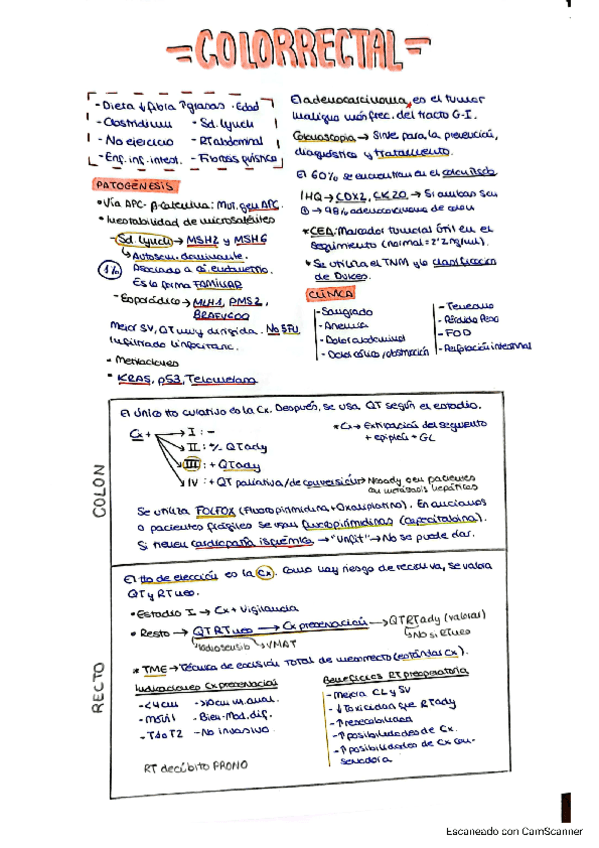 =COLORRECTAL=
- Dieta ↓ fibra ↑grasas · Edad
- Clostridium - Sd. Lynch
- No ejercicio - RT abdominal
- Enf. inf. intest. - Fibrosis quística
El adenocarcinoma, es el tumor
maligno más frec. del tracto G-I.
Colonoscopia → Sirve para la prevención,
diagnóstico y tratamiento.
El 60% se encuentran en el
IHQ → CDX2, CK20 → Si ambas son
⊕ → 98% adenocarcinoma de colon
* CEA: Marcador tumoral útil en el
seguimiento (normal = 2'2 ng/ml).
* Se utiliza el TNM y la clasificación
de Dukes.
PATOGÉNESIS
• Vía APC-β-catenina: Mut. gen APC.
• Inestabilidad de microsatélites
- Sd. Lynch → MSH2 y MSH6
↳ Autosóm. dominante.
1% Asociado a ca. endometrio.
Es la forma FAMILIAR
- Esporádico → MLH1, PMS2,
BRAFV600
Mejor SV, QT muy dirigida. No 5FU.
Infiltrado linfocitario.
• Metilaciones
• KRAS, p53, Telomerasa
CLÍNICA
- Sangrado
- Anemia
- Dolor abdominal
- Dolor cólico / obstrucción
- Tenesmo
- Pérdida Peso
- FOD
- Perforación intestinal
COLON
El único tto curativo es la Cx. Después, se usa QT según el estadio.
Cx + → I : -
→ II : +/- QTady
→ III : + QTady
→ IV : + QT paliativa / de conversión → Neoady en pacientes
con metástasis hepáticas
* Cx → Extirpación del segmento
+ epiplón + GL
Se utiliza FOLFOX (Fluoropirimidina + Oxaliplatino). En ancianos
o pacientes frágiles se usan fluoropirimidinas (capecitabina).
Si tienen cardiopatía isquémica → "Unfit" → No se puede dar.
RECTO
El tto de elección es la Cx. Como hay riesgo de recidiva, se valora
QT y RT neo.
• Estadio I → Cx + Vigilancia
• Resto → QTRTneo → Cx preservación → QTRTady (valorar)
Radiosensib ↳ VMAT
↳ No si RTneo
* TME → Técnica de escisión total de mesorrecto (estándar Cx).
Indicaciones Cx preservación
- <4cm
- Móvil
- T1 o T2
- Bien-Mod. dif.
- No invasivo
RT decúbito PRONO
Beneficios RT preoperatoria
- Mejora CL y SV
- ↓ Toxicidad que RTady
- ↑ resecabilidad
- ↑ posibilidades de Cx.
- ↑ posibilidades de Cx con-
servadora
Escaneado con CamScanner